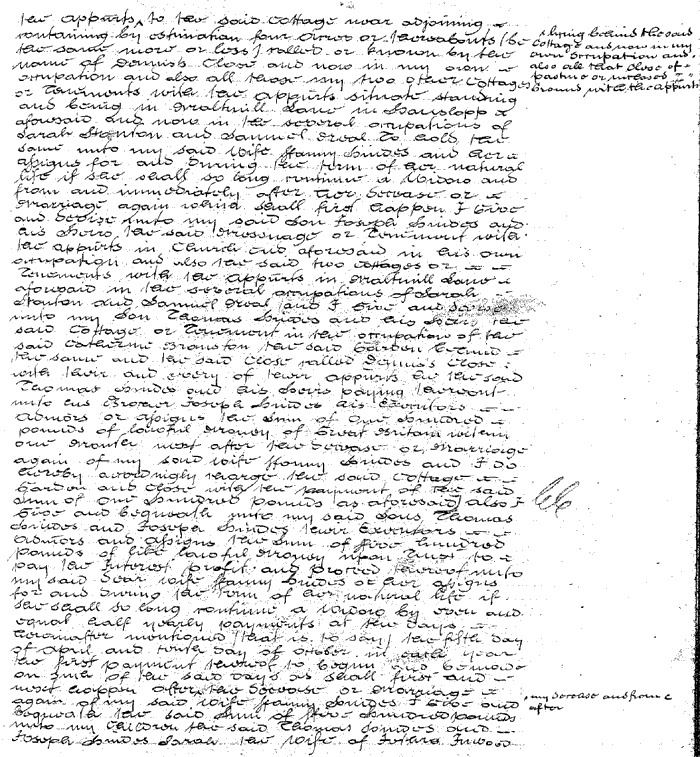 the appurts to the said Cottage near adjoining
containing by estimation four Acres or thereabouts (be
the same more or less) called or known by the
name of Dennis's Close and now in my own
occupation and also all those my two other Cottages
or Tenements with the appurts situate standing
and being in Lane in Hanslopp
aforesaid and now in the several occupations of
Sarah Stanton and Samuel To hold the
same unto my said Wife Fanny Hindes and her
assigns for and during the term of her natural
life if she shall so long continue a Widow and
from and immediately after her Decease or
Marriage again which shall first happen I Give
and Devise unto my said Son Joseph Hindes and
his Heirs the said Messuage or Tenement with
the appurts in Church End aforesaid in his own
occupation and also the said two Cottages or
Tenements with the appurts in Lane
aforesaid in the several occupations of Sarah
Stanton and Samuel and I Give and Devise
unto my Son Thomas Hindes and his Heirs the
said Cottage or Tenement in the occupation of the
said Catherine the said Garden behind
the same and the said Close called Dennis's Close
with their and every of their appurts he the said
Thomas Hindes and his Heirs paying thereout
unto his Brother Joseph Hindes his Executors
Admors or assigns the Sum of One Hundred
pounds of lawful Money of Great Britain within
one Month next after the Decease or Marriage
again of my said Wife Fanny Hindes and I do
hereby accordingly charge the said Cottage
Garden and Close with the payment of the said
Sum of One Hundred pounds (as aforesaid) also I
Give and bequeath unto my said Sons Thomas
Hindes and Joseph Hindes their Executors
Admors and assigns the Sum of five Hundred
pounds of like lawful Money upon Trust to
pay the Interest profit and proceed thereof unto
my said Dear Wife Fanny Hindes or her assigns
for and during the term of her natural life if
she shall so long continue a Widow by even and
equal half yearly payments at the days
hereinafter mentioned (that is to say) the fifth day
of April and tenth day of October in each year
the first payment thereof to begin and be made
on such of the said days as shall first and
next happen after the Decease or Marriage
again of my said Wife Fanny Hindes I Give and
bequeath the said Sum of five Hundred pounds
unto my Children the said Thomas Hindes and
Joseph Hindes Sarah the Wife of
lying behind the said
Cottage and now in my
own occupation and
also all that Close of
pasture or inclosed
Ground with the appurts
66
my decease and from &
after